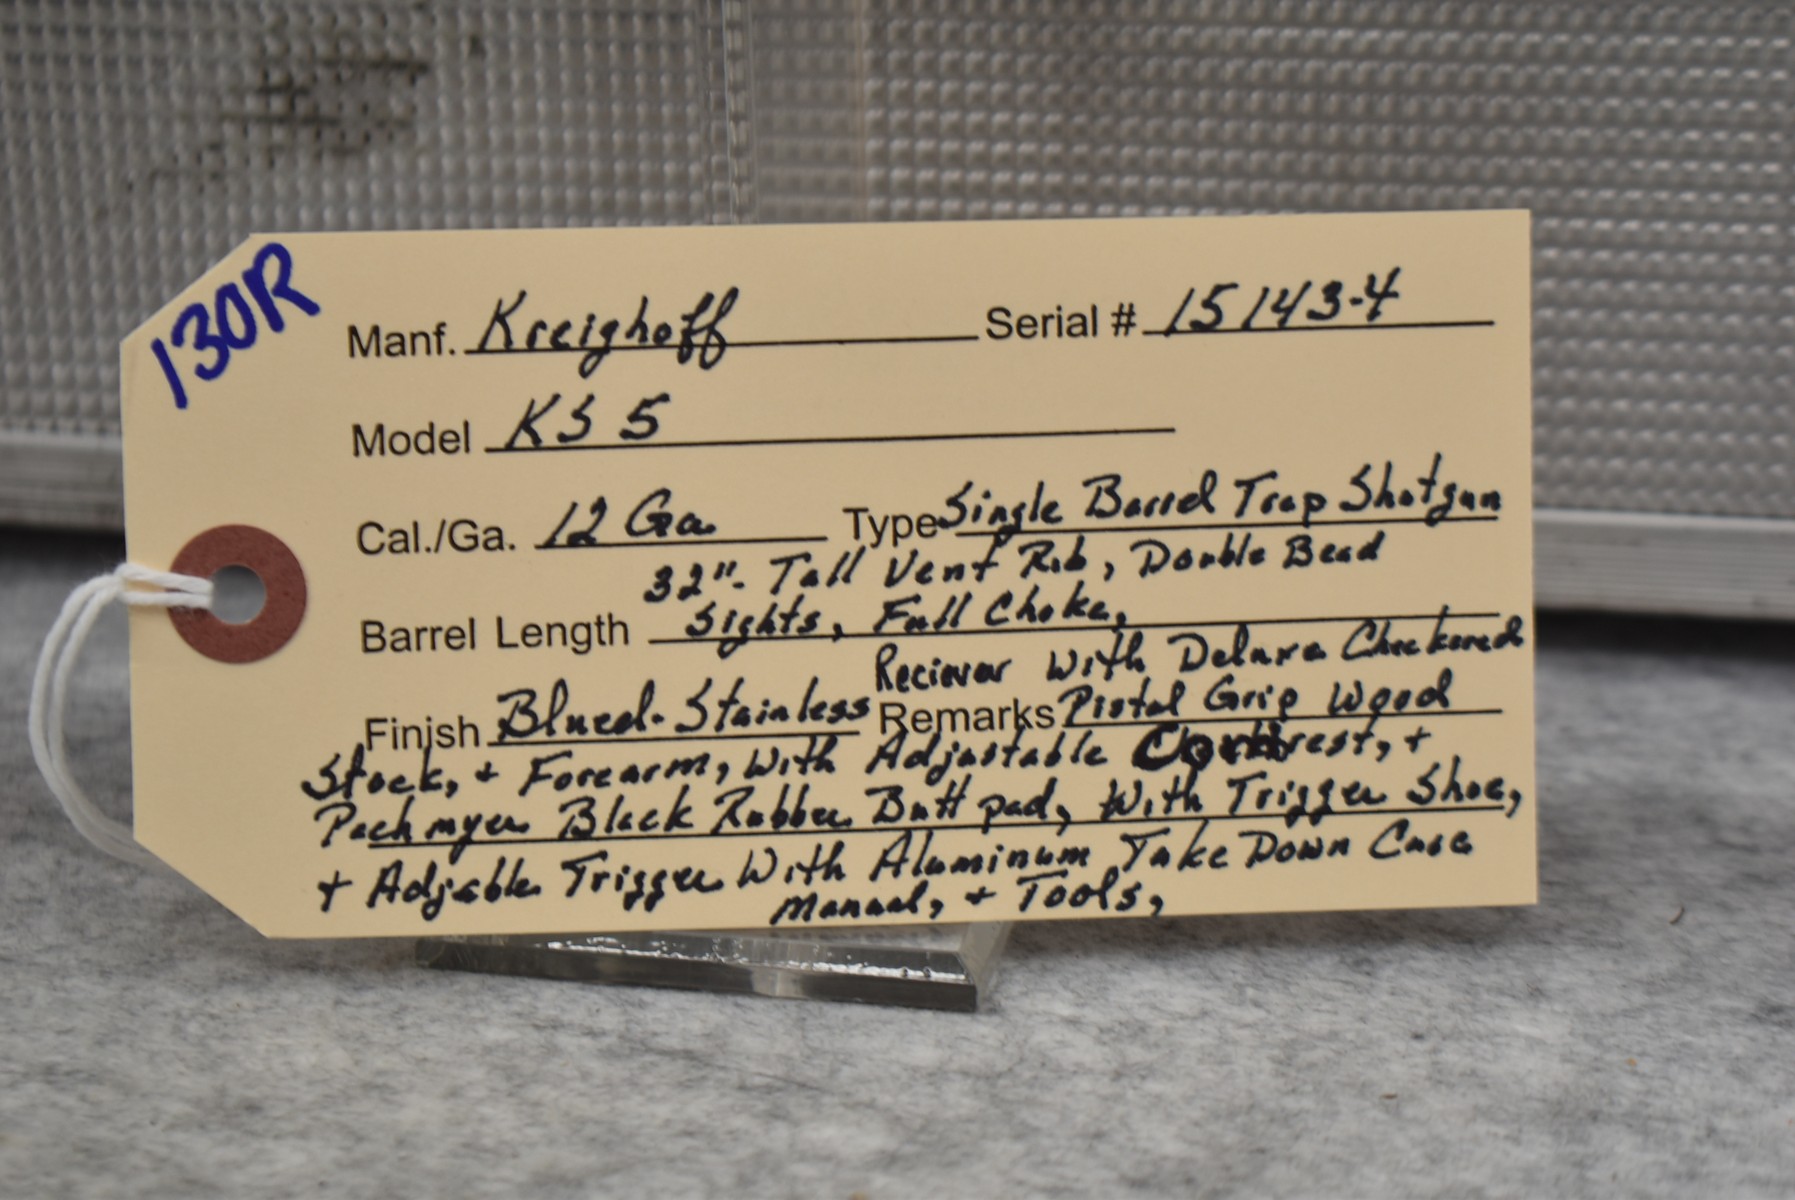 130R
Manf. Kreighoff Serial # 15143-4
Model KS 5
Cal./Ga. 12 Ga. Type Single Barrel Trap Shotgun
32"- Tall Vent Rib, Double Bead
Barrel Length Sights, Full Choke,
Reciever With Deluxe Checkered
Finish Blued-Stainless Remarks Pistol Grip Wood
Stock, + Forearm, With Adjustable +
Pachmyer Black Rubber Butt pad, With Trigger Shoe,
+ Adjable Trigger With Aluminum Take Down Case
Manual, + Tools,